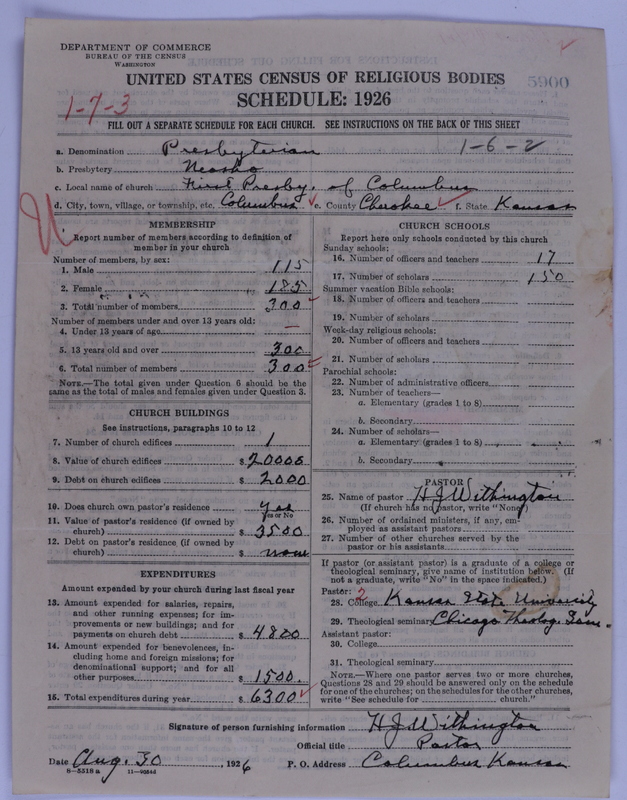 DEPARTMENT OF COMMERCE
BUREAU OF THE CENSUS
WASHINGTON
UNITED STATES CENSUS OF RELIGIOUS BODIES
5900
SCHEDULE: 1926
1-7-3
FILL OUT A SEPARATE SCHEDULE FOR EACH CHURCH. SEE INSTRUCTIONS ON THE BACK OF THIS SHEET
a. Denomination Presbyterian 1-6-2
b. Presbytery Neosho
c. Local name of church First Presby. of Columbus
d. City, town, village, or township, etc. Columbus e. County Cherokee f. State Kansas
MEMBERSHIP
Report number of members according to definition of
member in your church
Number of members, by sex:
1. Male 115
2. Female 185
3. Total number of members 300
Number of members under and over 13 years old:
4. Under 13 years of age —
5. 13 years old and over 300
6. Total number of members 300
NOTE.—The total given under Question 6 should be the
same as the total of males and females given under Question 3.
CHURCH BUILDINGS
See instructions, paragraphs 10 to 12
7. Number of church edifices 1
8. Value of church edifices $20000
9. Debt on church edifices $2000
10. Does church own pastor's residence yes
Yes or No
11. Value of pastor's residence (if owned by
church) $3500
12. Debt on pastor's residence (if owned by
church) $none
EXPENDITURES
Amount expended by your church during last fiscal year
13. Amount expended for salaries, repairs,
and other running expenses; for im-
provements or new buildings; and for
payments on church debt $4800
14. Amount expended for benevolences, in-
cluding home and foreign missions; for
denominational support; and for all
other purposes $1500.
15. Total expenditures during year $6300
CHURCH SCHOOLS
Report here only schools conducted by this church
Sunday schools:
16. Number of officers and teachers 17
17. Number of scholars 150
Summer vacation Bible schools:
18. Number of officers and teachers
19. Number of scholars
Week-day religious schools:
20. Number of officers and teachers
21. Number of scholars
Parochial schools:
22. Number of administrative officers
23. Number of teachers—
a. Elementary (grades 1 to 8)
b. Secondary
24. Number of scholars—
a. Elementary (grades 1 to 8)
b. Secondary
PASTOR
25. Name of pastor H J Withington
(If church has no pastor, write "None")
26. Number of ordained ministers, if any, em-
ployed as assistant pastors
27. Number of other churches served by the
pastor or his assistants
If pastor (or assistant pastor) is a graduate of a college or
theological seminary, give name of institution below. (If
not a graduate, write "No" in the space indicated.)
Pastor: 2
28. College Kansas State University
29. Theological seminary Chicago Theolog. Sem.
Assistant pastor:
30. College
31. Theological seminary
NOTE.—Where one pastor serves two or more churches,
Questions 28 and 29 should be answered only on the schedule
for one of the churches; on the schedules for the other churches,
write "See schedule for church."
Signature of person furnishing information H J Withington
Official title Pastor
Date Aug. 30, 1926 P. O. Address Columbus Kansas